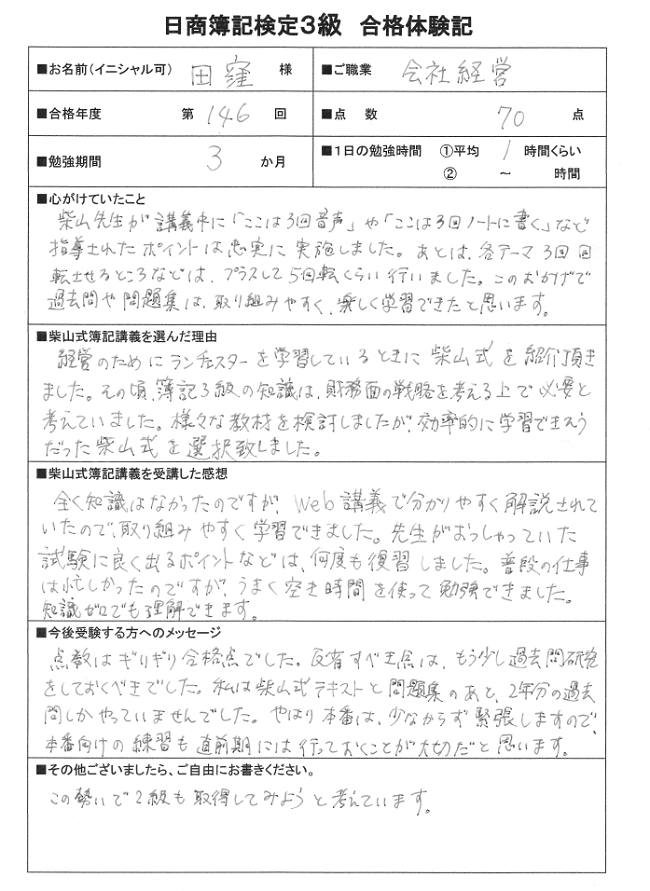 日商簿記検定3級 合格体験記
■お名前(イニシャル可) 田窪 様
■ご職業 会社経営
■合格年度 第146回
■点 数 70 点
■勉強期間 3 か月
■1日の勉強時間 ①平均 1 時間くらい
② ～ 時間
■心がけていたこと
柴山先生が講義中に「ここは3回音声」や「ここは3回ノートに書く」など
指導されたポイントは忠実に実施しました。あとは、各テーマ3回回
転させるところなどは、プラスして5回転くらい行いました。このおかげで
過去問や問題集は、取り組みやすく、楽しく学習できたと思います。
■柴山式簿記講義を選んだ理由
経営のためにランチェスターを学習しているときに柴山式を紹介頂き
ました。その頃、簿記3級の知識は、財務面の戦略を考える上で必要と
考えていました。様々な教材を検討しましたが、効率的に学習できそう
だった柴山式を選択致しました。
■柴山式簿記講義を受講した感想
全く知識はなかったのですが、Web講義で分かりやすく解説されて
いたので、取り組みやすく学習できました。先生がおっしゃっていた
試験に良く出るポイントなどは、何度も復習しました。普段の仕事
は忙しかったのですが、うまく空き時間を使って勉強できました。
知識ゼロでも理解できます。
■今後受験する方へのメッセージ
点数はギリギリ合格点でした。反省すべき点は、もう少し過去問研究
をしておくべきでした。私は柴山式テキストと問題集のあと、2年分の過去
問しかやっていませんでした。やはり本番は、少なからず緊張しますので、
本番向けの練習も直前期には行っておくことが大切だと思います。
■その他ございましたら、ご自由にお書きください。
この勢いで2級も取得してみようと考えています。